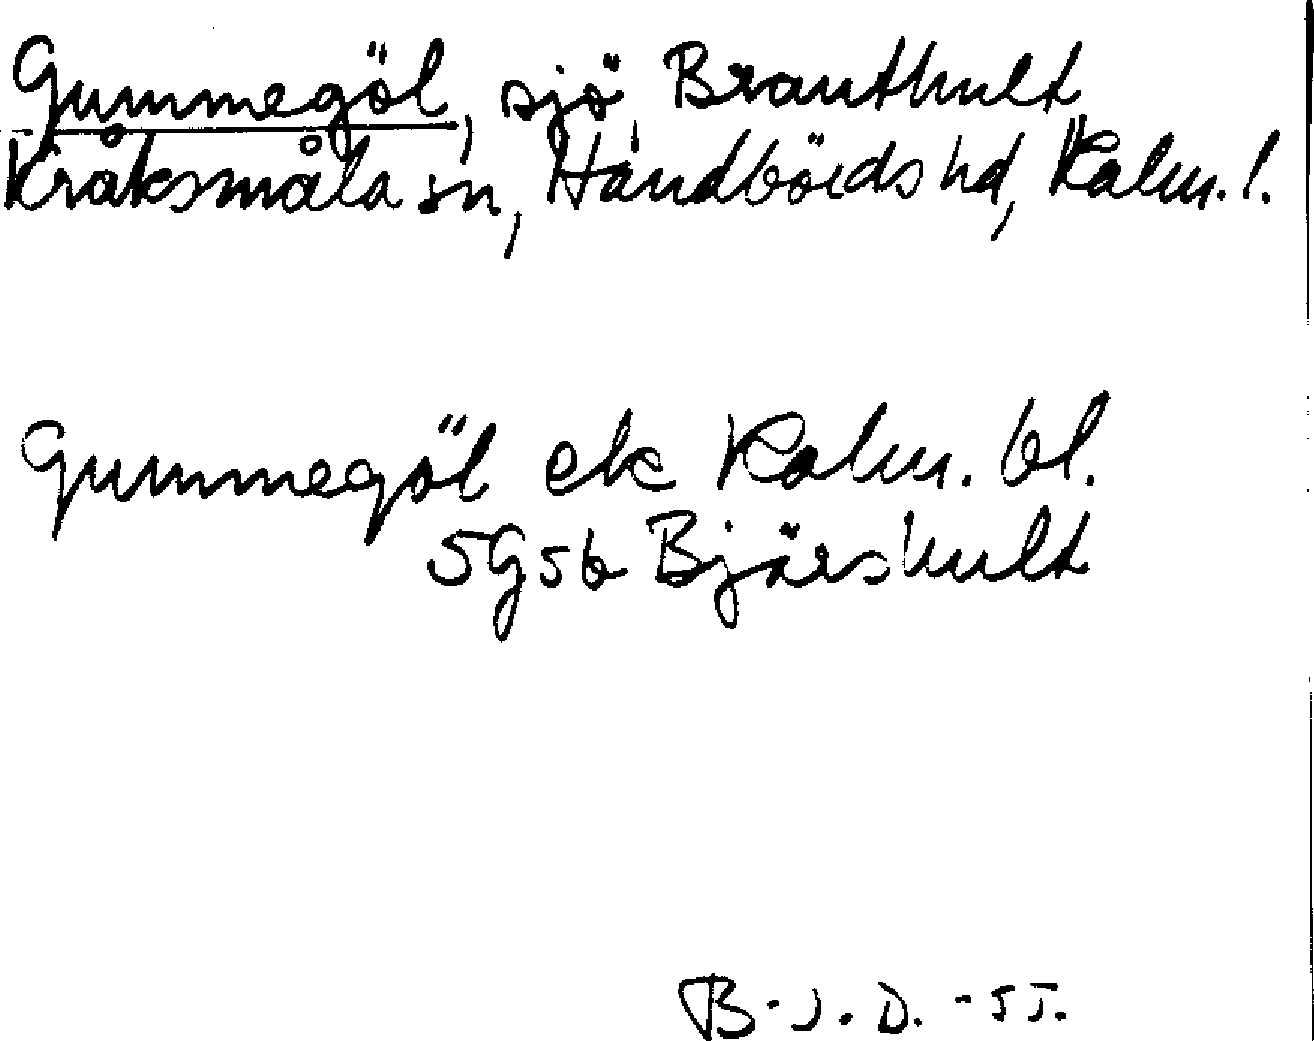 Gummegöl, sjö Brauthult,
Kråksmåla sn, Handbörds hd, Kalm. l.
Gummegöl ek Kalm. bl.
5G5b Bjärshult
B.J.D. -55.